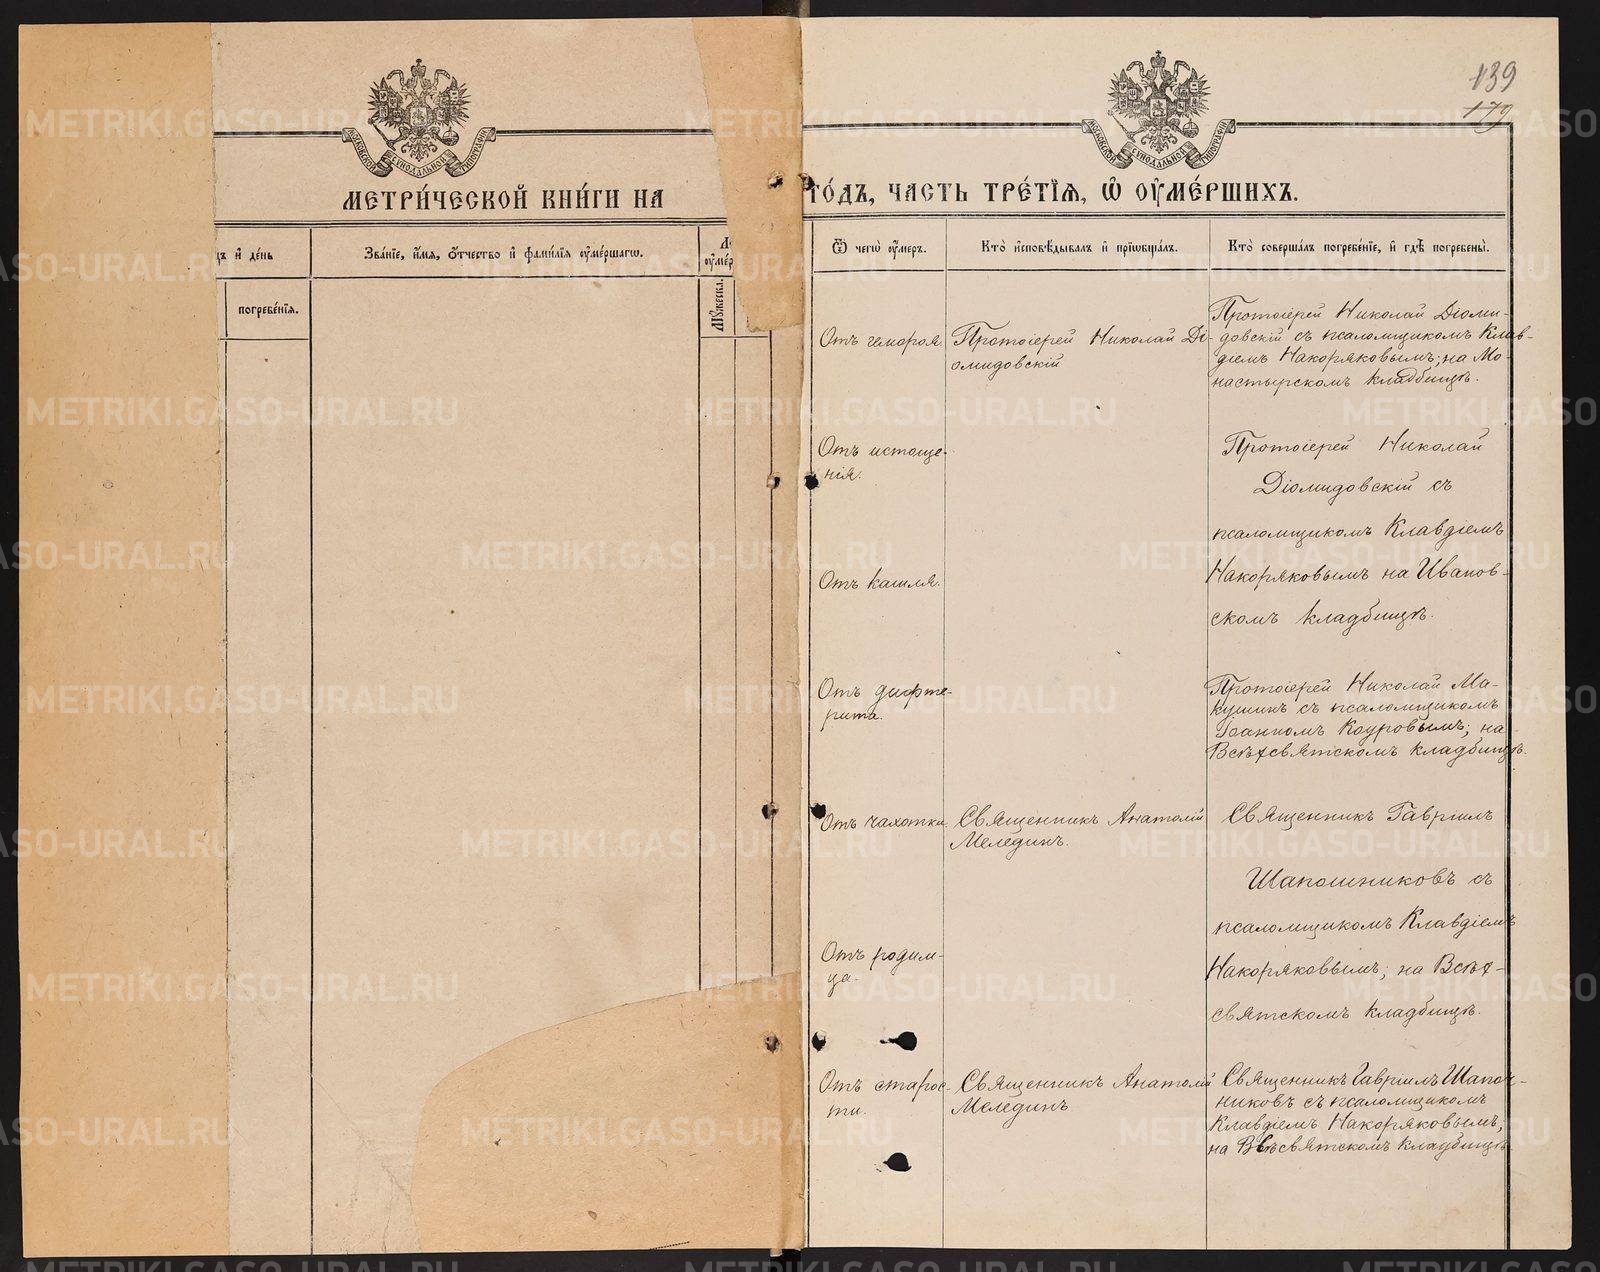 139
179
МОСКОВСКОЙ СѴНОДАЛЬНОЙ ТИПОГРАФІИ
МЕТРИ́ЧЕСКОЙ КНИ́ГИ НА
МОСКОВСКОЙ СѴНОДАЛЬНОЙ ТИПОГРАФІИ
ГО́ДЪ, ЧАСТЬ ТРЕ́ТІЯ, Ѽ ОУ҆МЕ́РШИХЪ.
и҆ де́нь
погребе́нїѧ.
Зва́нїе, и҆́мѧ, ѻ҆́тчество и҆ фами́лїѧ оу҆ме́ршагѡ.
Мꙋ́жеска.
Ѿ чегѡ̀ оу҆́меръ.
Кто̀ и҆сповѣ́дывалъ и҆ прїѡбща́лъ.
Кто̀ соверша́лъ погребе́нїе, и҆ гдѣ̀ погребены̀.
Отъ геморοя.
Протоіерей Николай Ді-
омидовскій
Протоіерей Николай Діоми-
довскій съ псаломщикомъ Клав-
діемъ Накоряковымъ; на Мо-
настырскомъ кладбищѣ.
Отъ истоще-
нія.
Протоіерей Николай
Діомидовскій съ
псаломщикомъ Клавдіемъ
Отъ кашля.
Накоряковымъ на Иванов-
скомъ кладбищѣ.
Отъ дифте-
рита.
Протоіерей Николай Ма-
кушинъ съ псаломщикомъ
Іоанномъ Кодровымъ; на
Всѣхсвятскомъ кладбищѣ.
Отъ чахотки.
Священникъ Анатолій
Меледин.
Священникъ Гавріилъ
Шапошниковъ съ
псаломщикомъ Клавдіемъ
Отъ родим-
ца.
Накоряковымъ; на Всѣх-
святскомъ кладбищѣ.
Отъ старос-
ти.
Священникъ Анатолій
Мелединъ
Священникъ Гавріилъ Шапош-
никовъ съ псаломщикомъ
Клавдіемъ Накоряковымъ,
на Всѣхсвятскомъ кладбищѣ.
METRIKI.GASO-URAL.RU